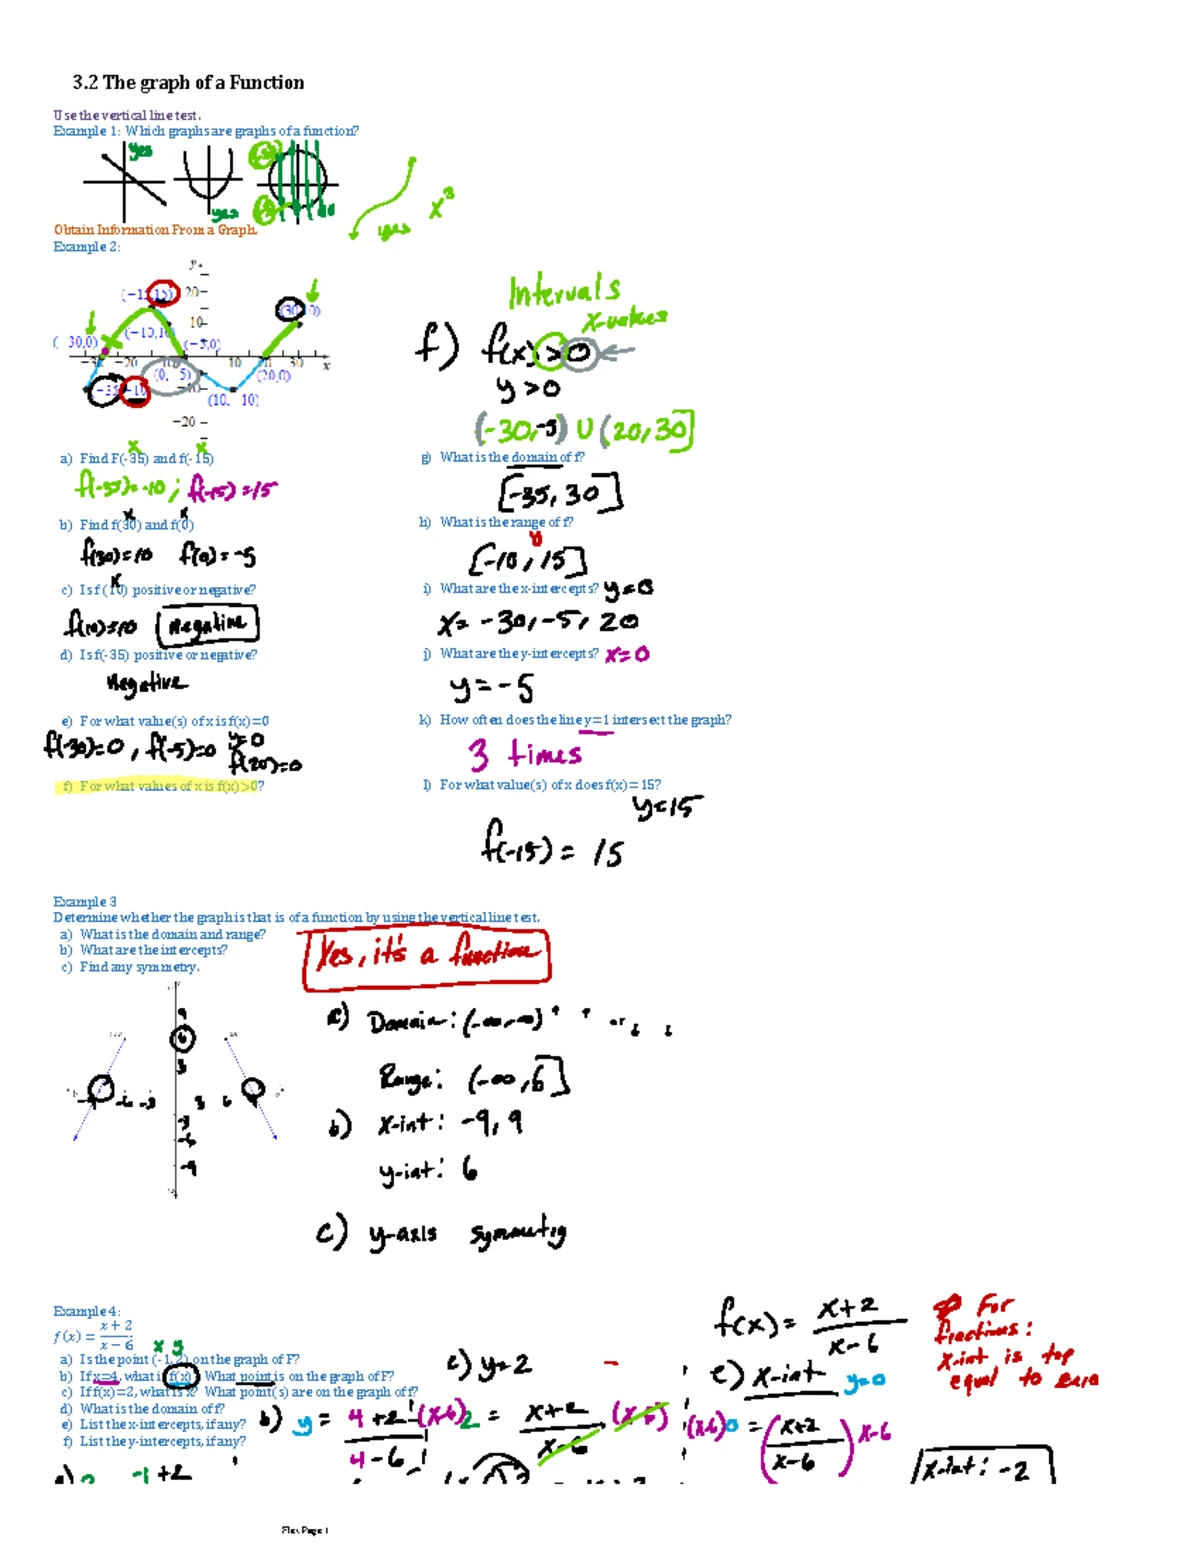 3.2 The graph of a Function
Use the vertical line test.
Example 1: Which graphs are graphs of a function?
yes
yes
no
yes
x³
Obtain Information From a Graph.
Example 2:
a) Find F(-35) and f(-15)
f(-35)=-10; f(-15)=15
b) Find f(30) and f(0)
f(30)=10 f(0)=-5
c) Is f(10) positive or negative?
f(10)=10 negative
d) Is f(-35) positive or negative?
Negative
e) For what value(s) of x is f(x)=0
y=0
f(-30)=0, f(-5)=0 f(20)=0
f) For what values of x is f(x)>0?
Intervals
x-values
f) f(x)>0
y>0
(-30,-5) U (20,30]
g) What is the domain of f?
[-35, 30]
h) What is the range of f?
[-10, 15]
i) What are the x-intercepts? y=0
x= -30, -5, 20
j) What are the y-intercepts? x=0
y=-5
k) How often does the line y=1 intersect the graph?
3 times
l) For what value(s) of x does f(x)=15?
y=15
f(-15)= 15
Example 3
Determine whether the graph is that is of a function by using the vertical line test.
a) What is the domain and range?
b) What are the intercepts?
c) Find any symmetry.
Yes, it's a function
Domain: (-∞,∞)
Range: (-∞,6]
b) x-int: -9, 9
y-int: 6
c) y-axis symmetry
Example 4:
f(x) = x + 2 / x − 6
a) Is the point (-1,2) on the graph of F?
b) If x=4, what is f(x) What point is on the graph of F?
c) If f(x)=2, what is x? What point(s) are on the graph of f?
d) What is the domain of f?
e) List the x-intercepts, if any?
f) List the y-intercepts, if any?
c) y=2
b) y = 4+2 / 4-6
(x-6)2 = x+2 / x-6 (x-6)
f(x)= x+2 / x-6
e) x-int y=0
(x-6)0 = (x+2 / x-6) x-6
For
fractions:
x-int is top
equal to zero
x-int: -2
-1+2